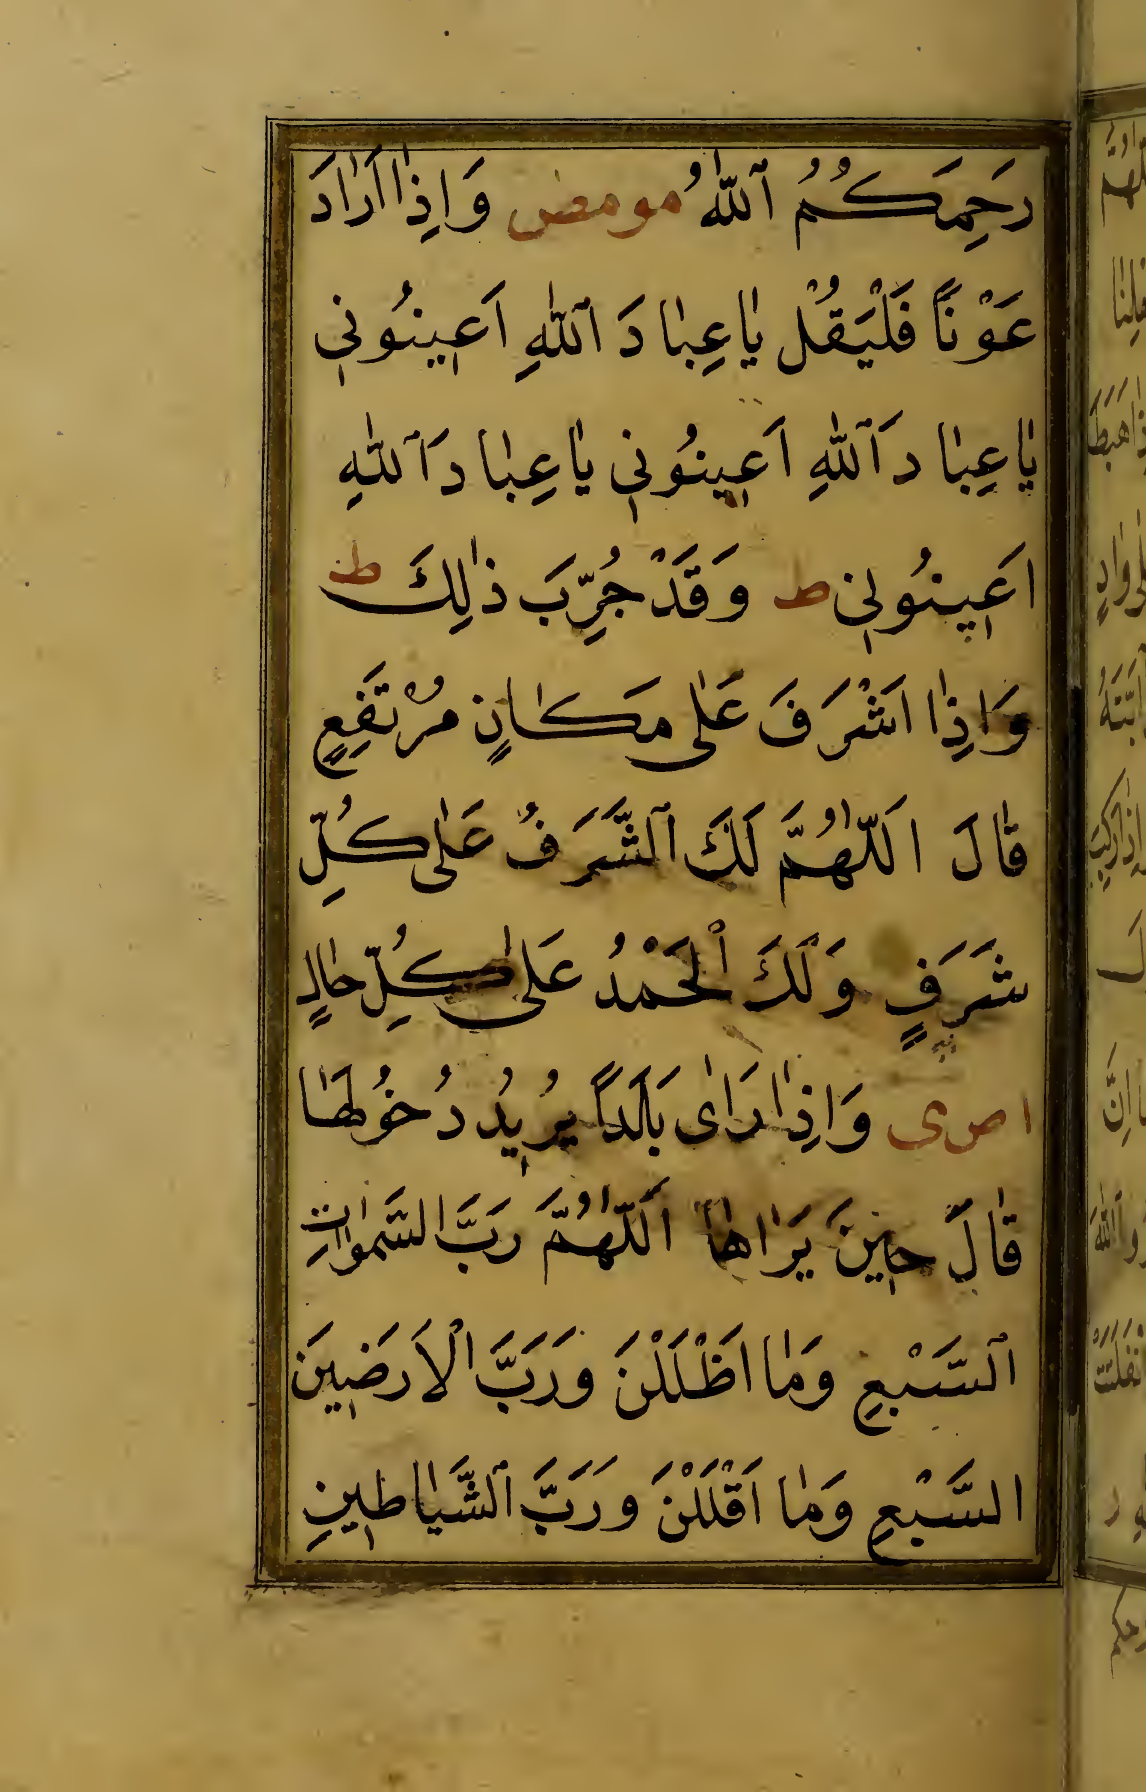 رَحِمَكُمُ ٱللّٰهُ مو مص وَاِذٰا اَرٰادَ
عَوْنًا فَلْيَقُلْ يٰا عِبٰادَ ٱللّٰهِ اَعِينُونِي
يٰا عِبٰادَ ٱللّٰهِ اَعِينُونِي يٰا عِبٰادَ ٱللّٰهِ
اَعِينُونِي ط وَقَدْ جُرِّبَ ذٰلِكَ ط
وَاِذٰا اَشْرَفَ عَلٰى مَكٰانٍ مُرْتَفِعٍ
قٰالَ اَللّٰهُمَّ لَكَ ٱلشَّرَفُ عَلٰى كُلِّ
شَرَفٍ وَلَكَ ٱلْحَمْدُ عَلٰى كُلِّ حٰالٍ
ا ص ى وَاِذٰا رَاٰى بَلَدًا يُرِيدُ دُخُولَهٰا
قٰالَ حِينَ يَرٰاهٰا اَللّٰهُمَّ رَبَّ السَّمٰوٰاتِ
ٱلسَّبْعِ وَمٰا اَظْلَلْنَ وَرَبَّ الْاَرَضِينَ
السَّبْعِ وَمٰا اَقْلَلْنَ وَرَبَّ ٱلشَّيٰاطِينِ